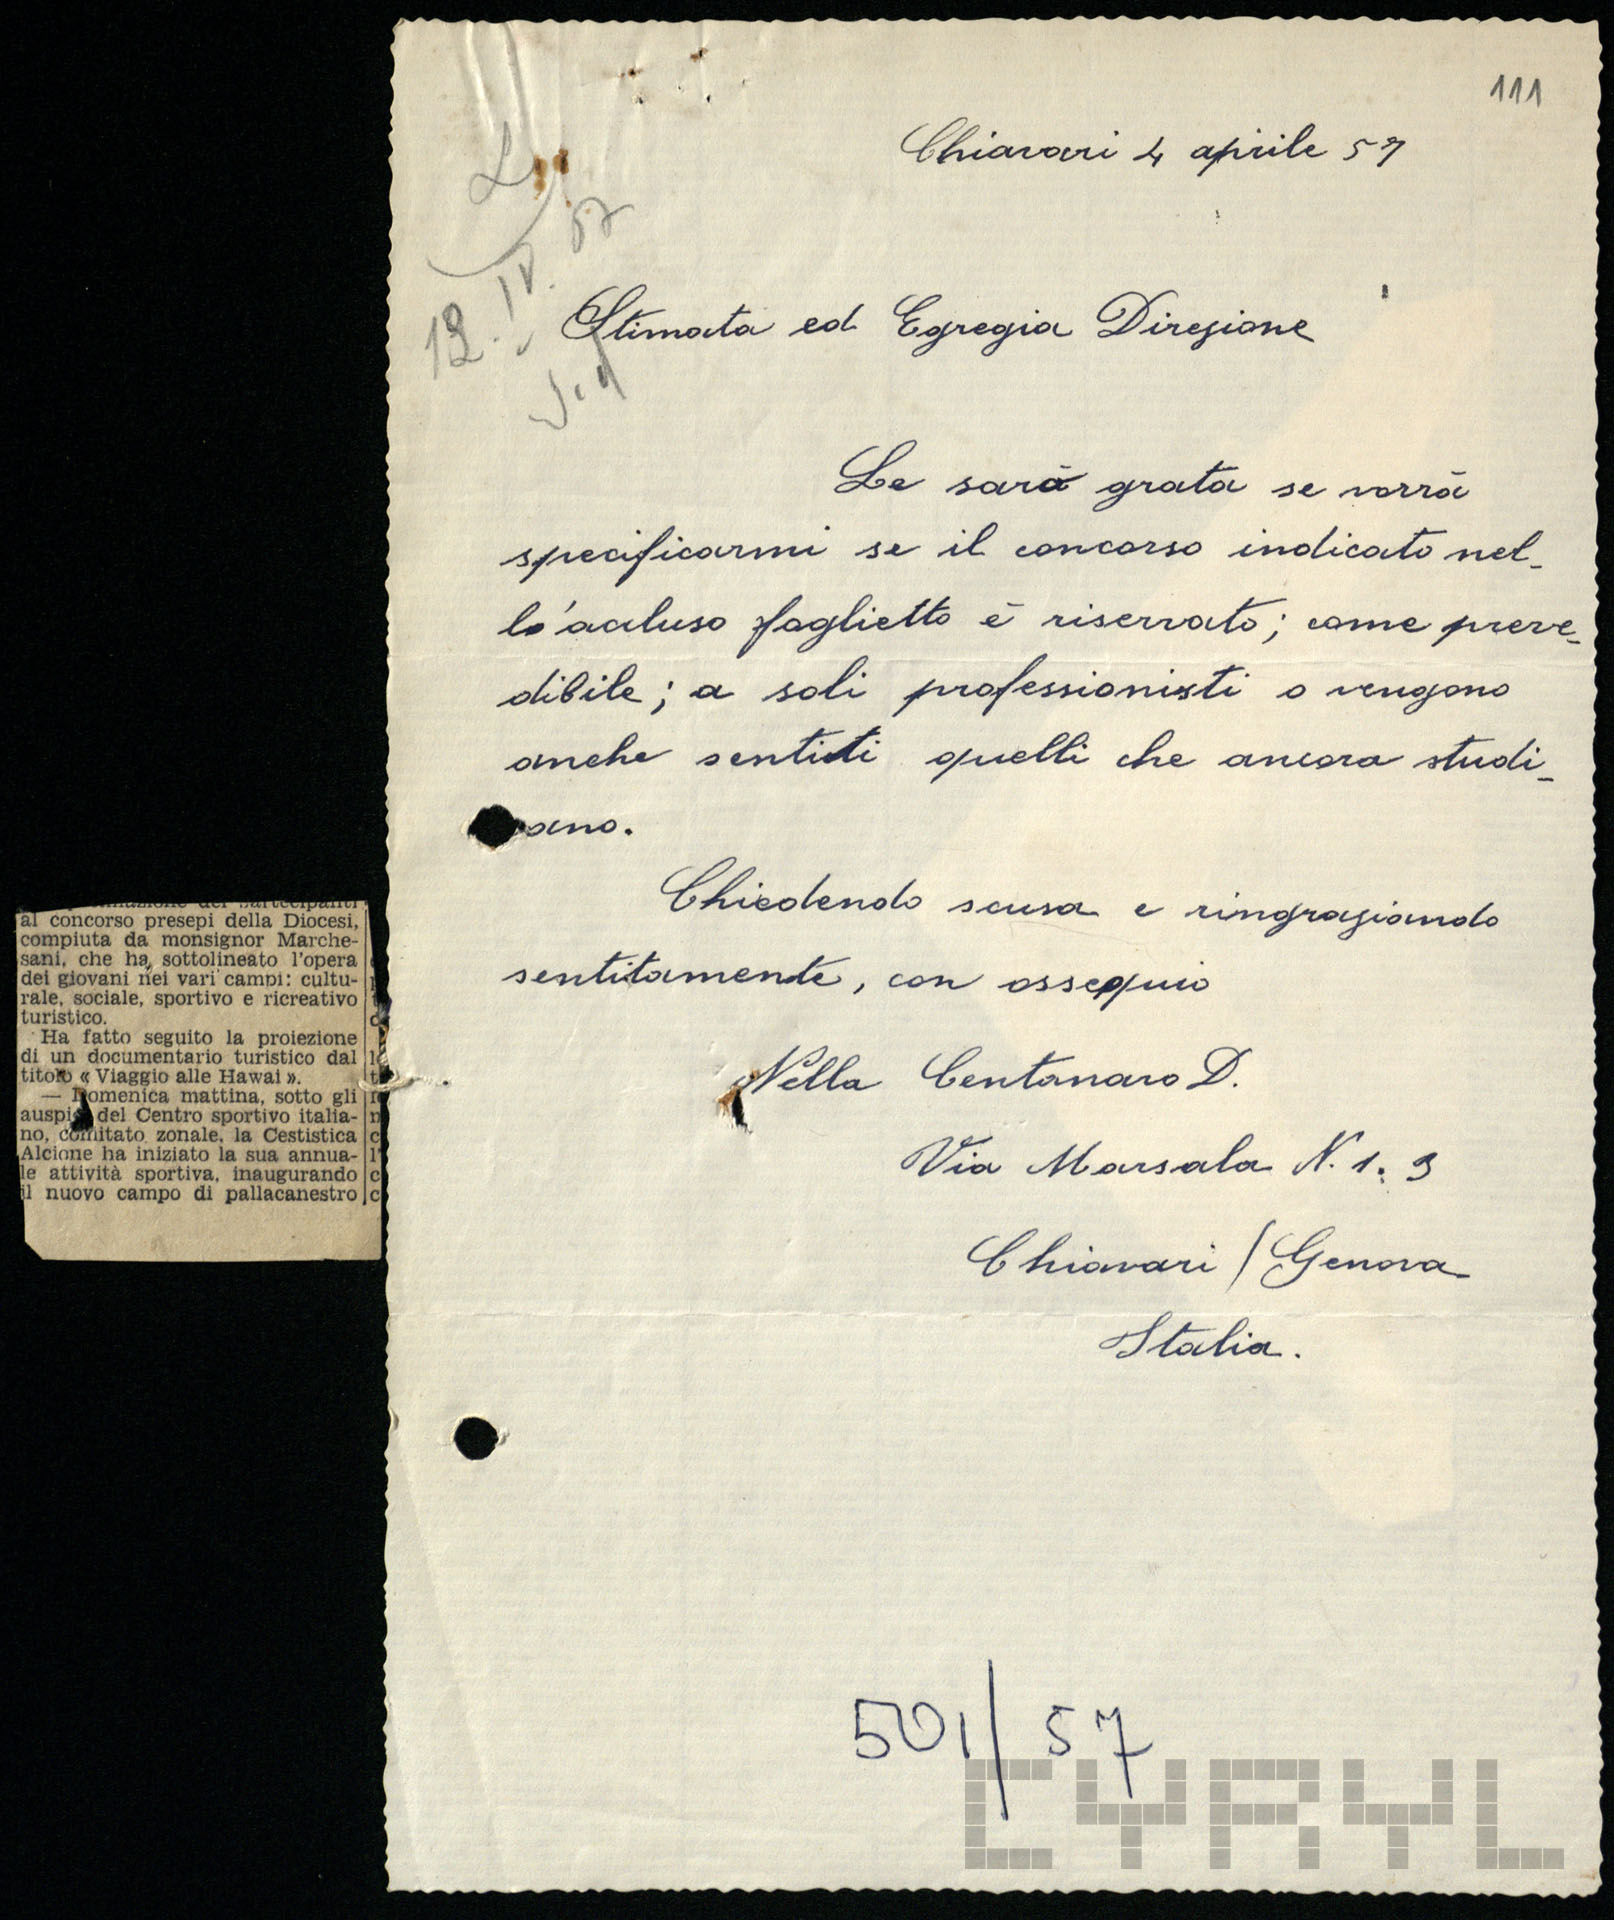 111
Chiavari 4 aprile 57
12. IV. 57
Stimata ed Egregia Direzione
Le sarà grata se vorrà
specificarmi se il concorso indicato nel-
l'acluso foglietto è riservato; come preve-
dibile; a soli professionisti o vengono
anche sentiti quelli che ancora studi-
ano.
Chiedendo scusa e ringraziando
sentitamente, con ossequio
Nella Centanaro D.
Via Marsala N. 1. 9
Chiavari / Genova
Italia.
501/57
CYRYL
dei partecipanti
al concorso presepi della Diocesi,
compiuta da monsignor Marche-
sani, che ha sottolineato l'opera
dei giovani nei vari campi: cultu-
rale, sociale, sportivo e ricreativo
turistico.
Ha fatto seguito la proiezione
di un documentario turistico dal
titolo « Viaggio alle Hawai ».
— Domenica mattina, sotto gli
auspici del Centro sportivo italia-
no, comitato zonale, la Cestistica
Alcione ha iniziato la sua annua-
le attività sportiva, inaugurando
il nuovo campo di pallacanestro